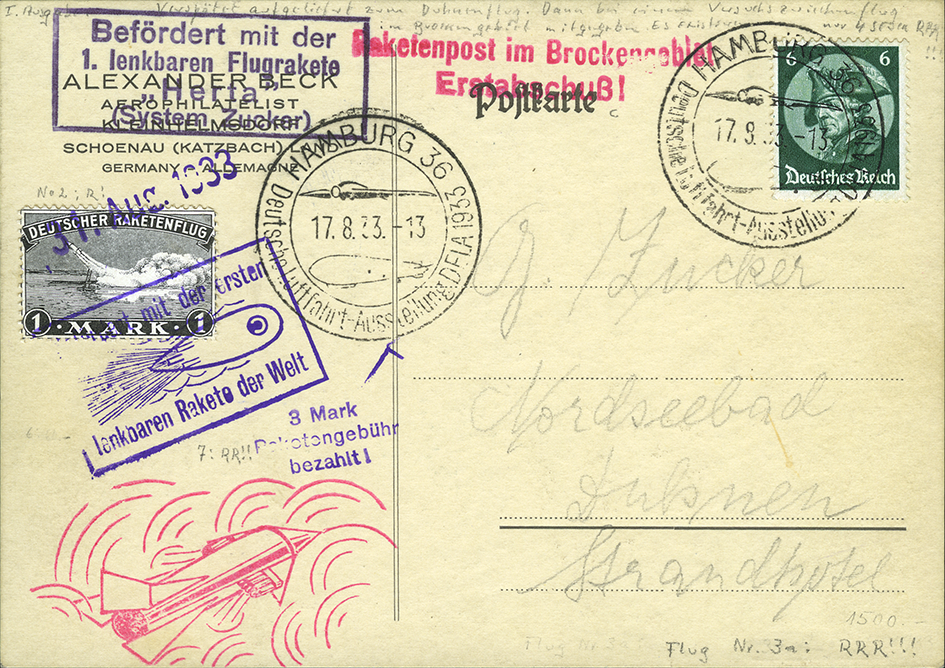 I. Ausg
Verspätet aufgeliefert zum Duhnenflug. Dann bei einem Versuchszwischenflug
im Brockengebiet mitgegeben Es existieren nur 4 Stück RRR!!!
Befördert mit der
1. lenkbaren Flugrakete
„Herta"
(System Zucker)
ALEXANDER BECK
AEROPHILATELIST
KLEINHELMSDORF
SCHOENAU (KATZBACH)
GERMANY ALLEMAGNE
Raketenpost im Brockengebiet
Erstabschuß!
Postkarte
HAMBURG 36
17.8.33.-13
Deutsche Luftfahrt-Ausstellung DELA 1933
HAMBURG 36
17.8.33.-13
Deutsche Luftfahrt-Ausstellung 1933
6 6
Deutsches Reich
No 2; R!
31. AUG. 1933
DEUTSCHER RAKETENFLUG
1 · MARK · 1
mit der ersten
lenkbaren Rakete der Welt
7: RR!!
3 Mark
Raketengebühr
bezahlt!
G. Zucker
Nordseebad
Duhnen
Strandhotel
1500.-
Flug Nr. 3a: RRR!!!